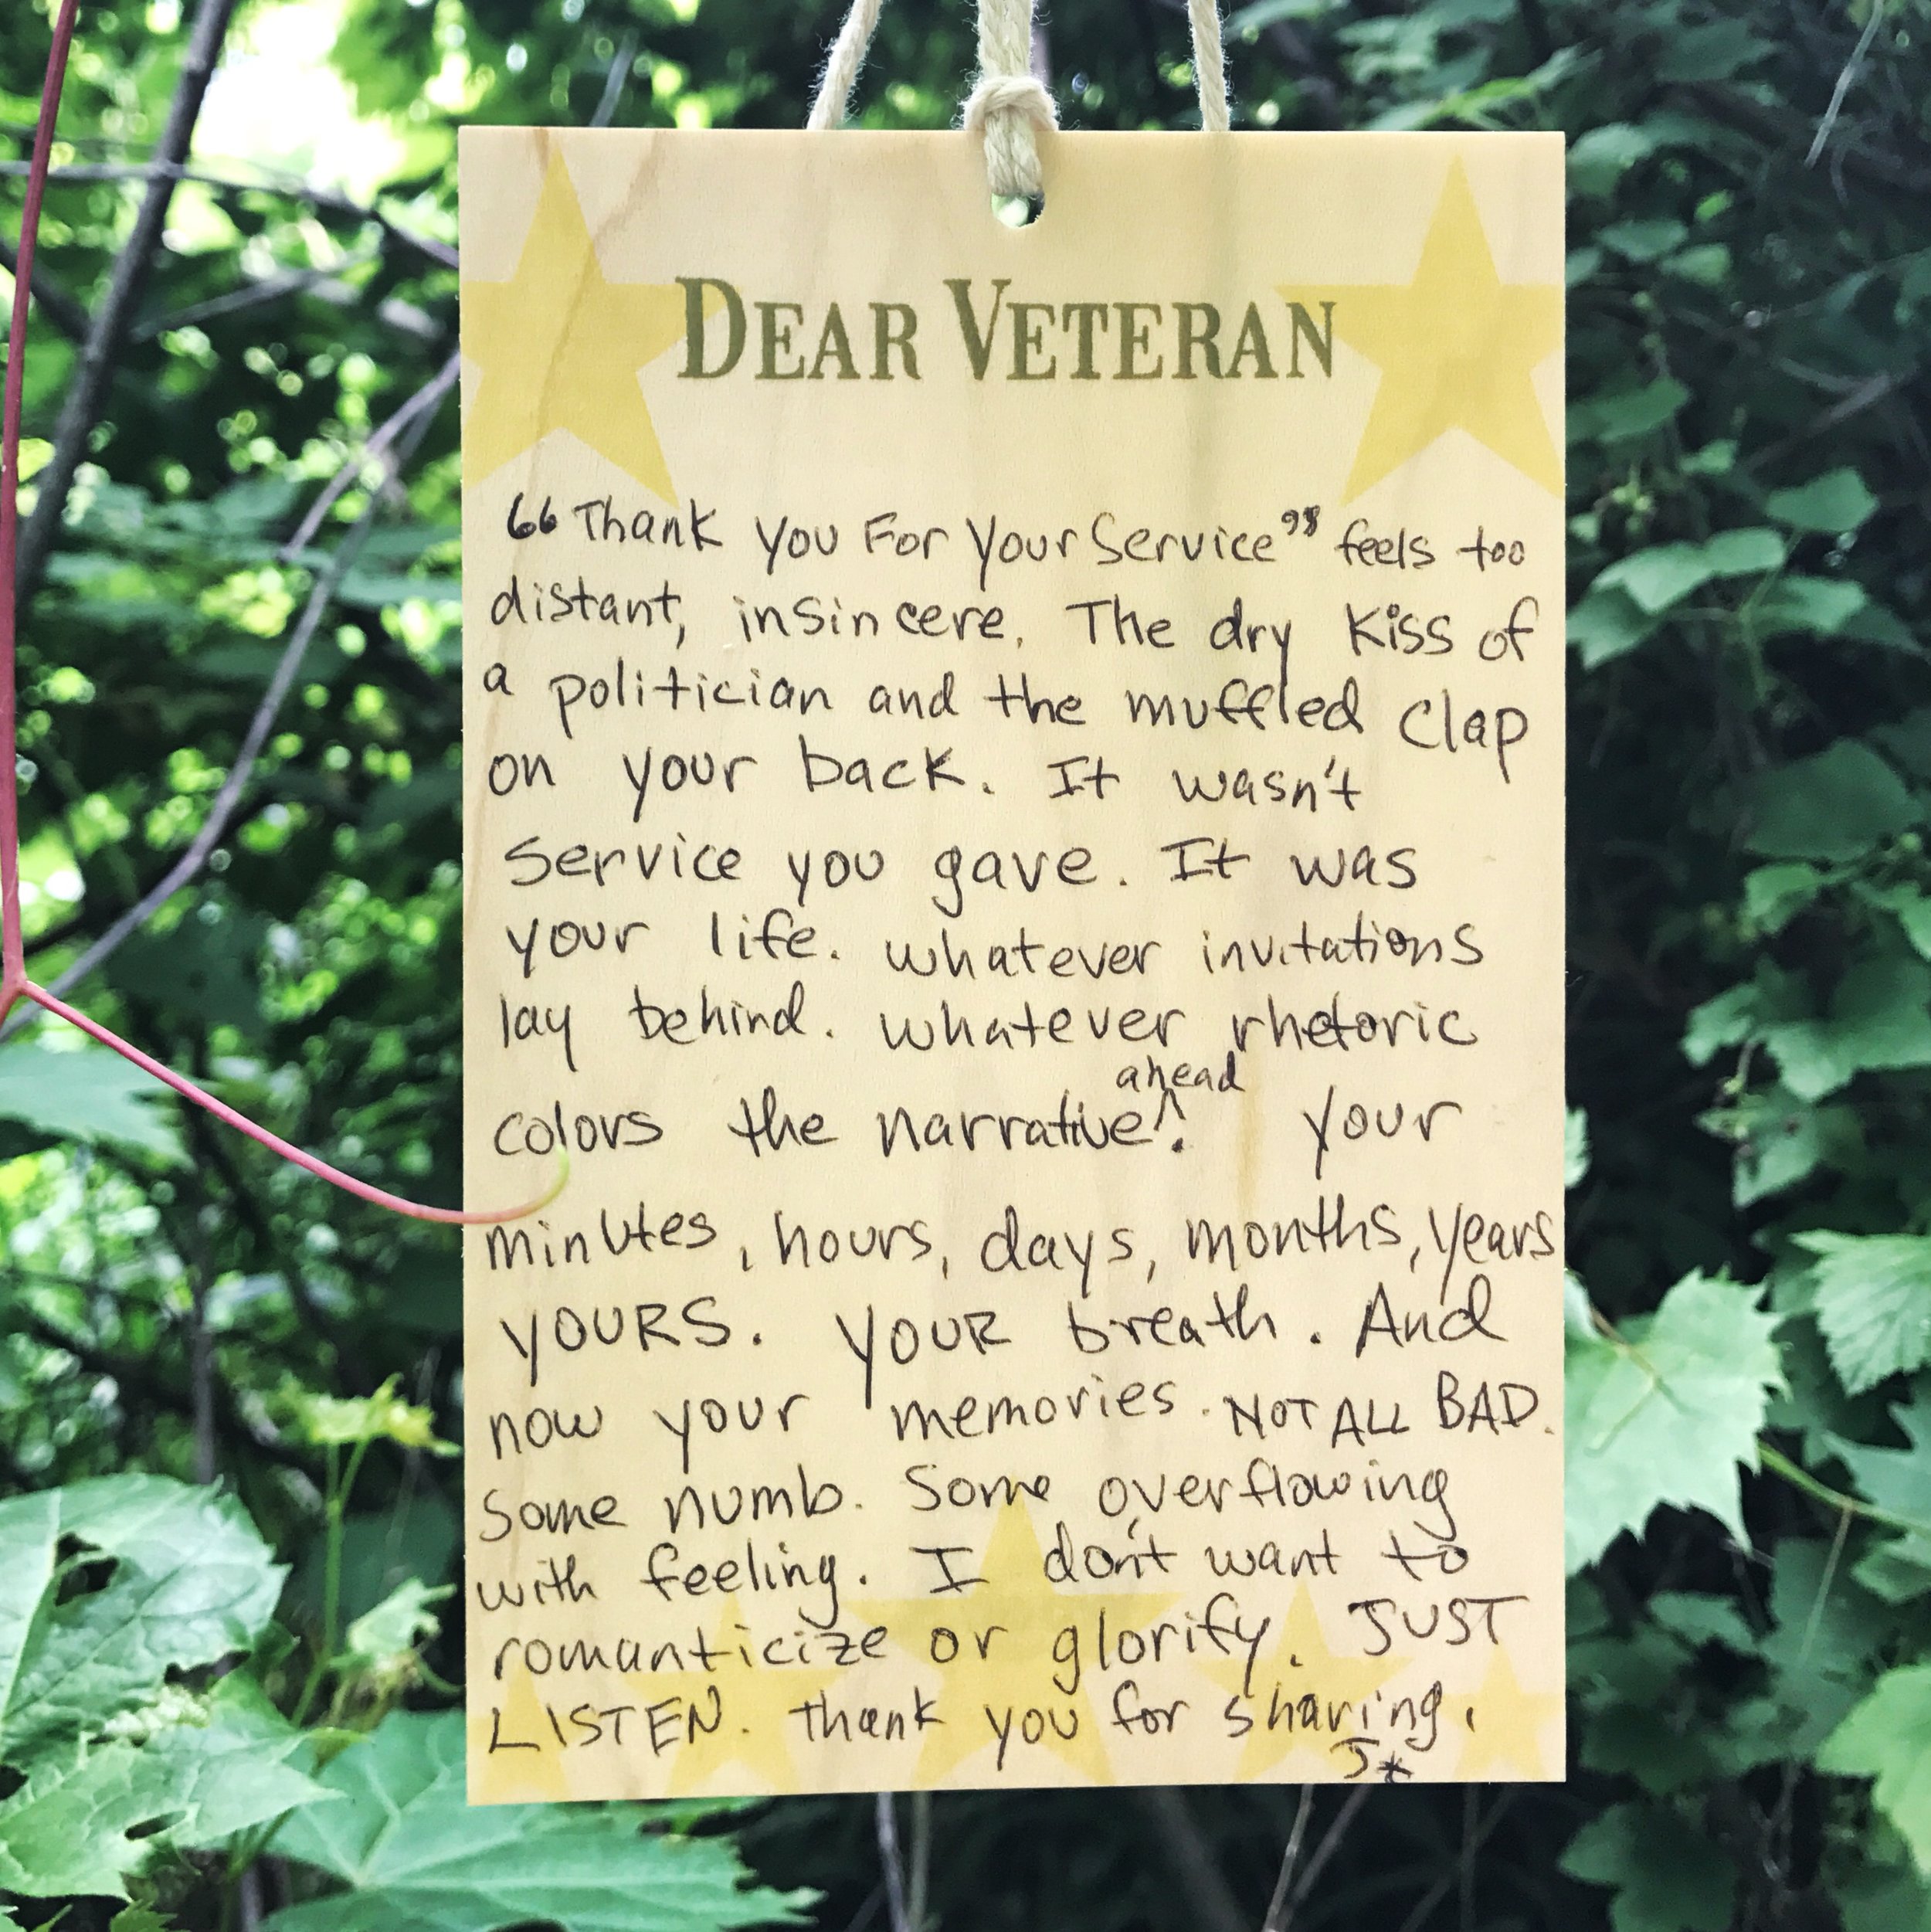 DEAR VETERAN
"Thank You For Your Service" feels too
distant, insincere. The dry kiss of
a politician and the muffled clap
on your back. It wasn't
service you gave. It was
your life. whatever invitations
lay behind. whatever rhetoric
ahead
colors the narrative^. Your
minutes, hours, days, months, years
YOURS. YOUR breath. And
now your memories. NOT ALL BAD.
Some numb. Some overflowing
with feeling. I don't want to
romanticize or glorify. JUST
LISTEN. Thank you for sharing.
J*